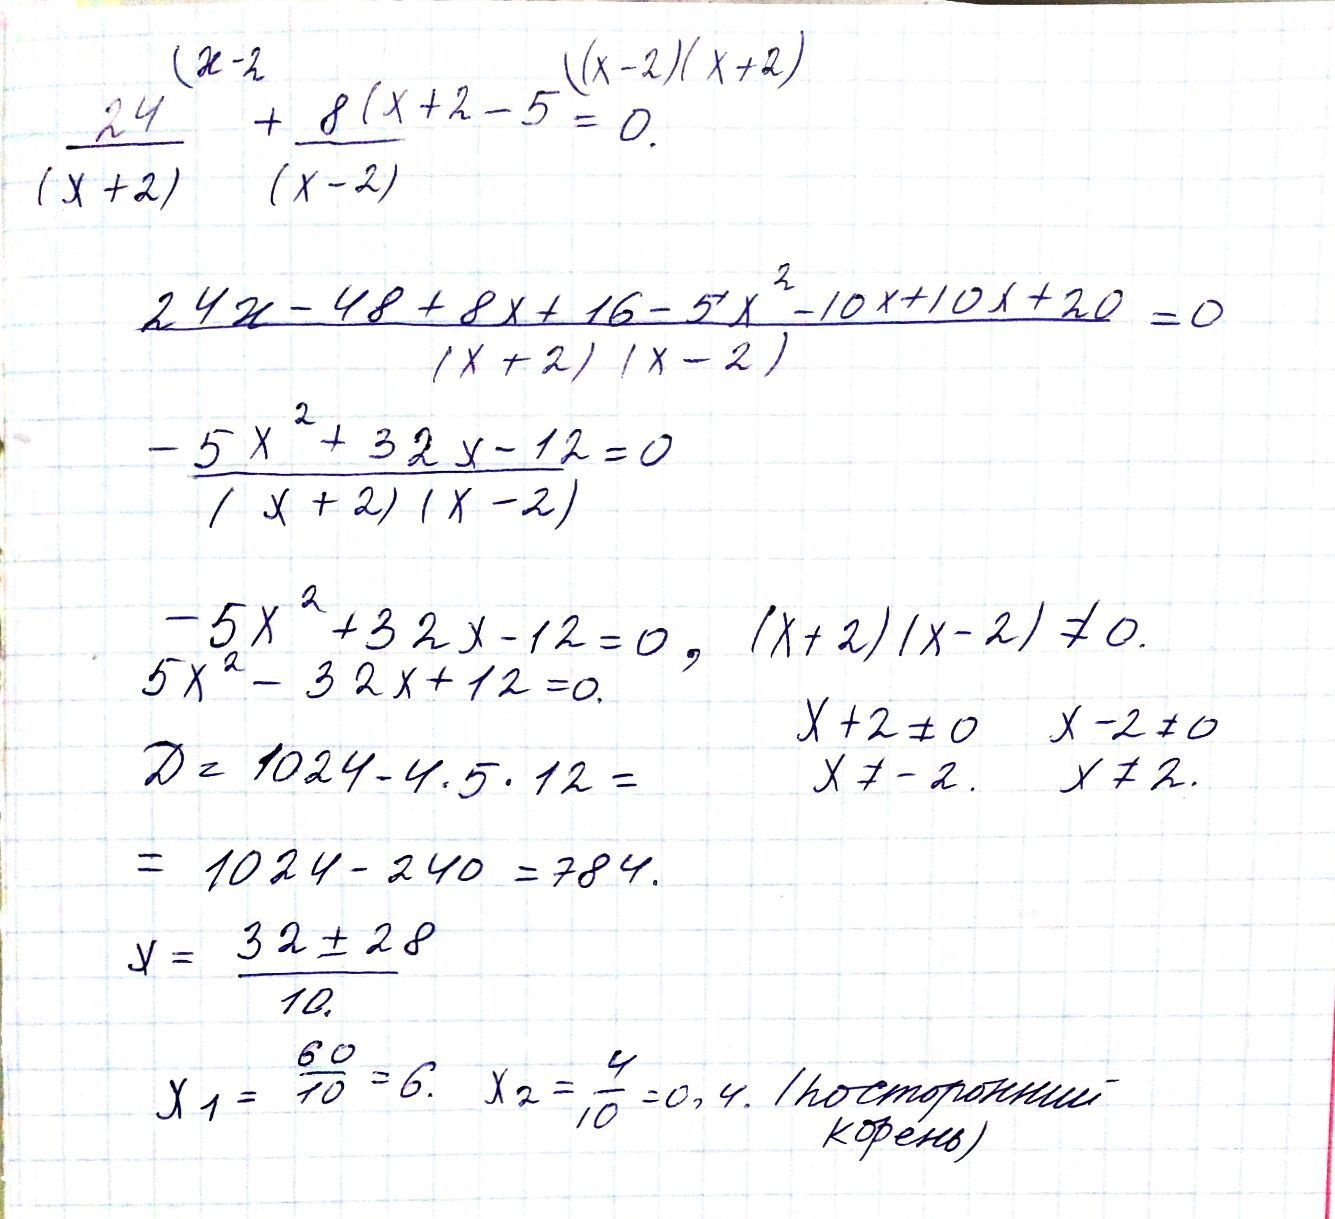 (x-2 ((x-2)(x+2)
24 + 8(x+2 - 5 = 0.
(x+2) (x-2)
24x - 48 + 8x + 16 - 5x² - 10x + 10x + 20 = 0
(x+2)(x-2)
- 5x² + 32x - 12 = 0
(x+2)(x-2)
-5x² + 32x - 12 = 0, (x+2)(x-2) ≠ 0.
5x² - 32x + 12 = 0.
x+2 ≠ 0 x-2 ≠ 0
D = 1024 - 4·5·12 = x ≠ -2. x ≠ 2.
= 1024 - 240 = 784.
x = 32 ± 28
10.
x₁ = 60/10 = 6. x₂ = 4/10 = 0,4. (посторонний
корень)